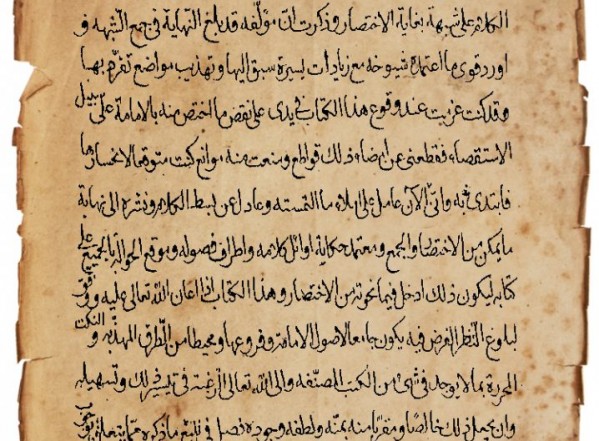 الكلام على شبهه بغاية الاختصار وذكرت ان مؤلفه قد بلغ النهاية في جمع الشبه و
اورد قوى ما اعتمده شيوخه مع زيادات يسيرة سبق اليها وتهذيب مواضع تفرد بها
وقد كنت عزمت عند وقوع هذا الكتاب في يدى على نقض ما اختص منه بالامامة على سبيل
الاستقصاء فقطعنى عن امضاء ذلك قواطع ومنعت منه موانع كنت متوقعا لانحسارها
فابتدى به وانا الآن عامل على املاء ما التمسته وعادل عن بسط الكلام ونشره الى نهاية
ما يمكن من الاختصار والجمع ومعتمد حكاية اوائل كلامه واطراف فصوله وموقع الحوالة بالجميع على
كتابه ليكون ذلك ادخل فيما نحوته من الاختصار وهذا الكتاب اذا اعان الله تعالى عليه ووفق
لبلوغ الغرض فيه يكون جامعا لاصول الامامة وفروعها ومحيطا من الطرق المهذبة و النكت
المحررة بما لا يوجد في شئ من الكتب المصنفه والى الله تعالى الرغبة في تيسير ذلك وتسهيله
وان يجعل ذلك خالصا ومقربا منه بمنه ولطفه وجوده فصل في تتبع ما ذكره مما يتعلق بوجوب